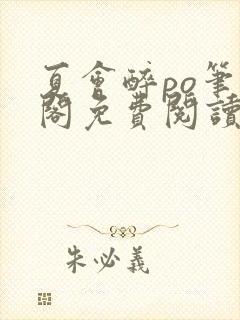 夏會醉po筆
閣免費閱讀
朱必義